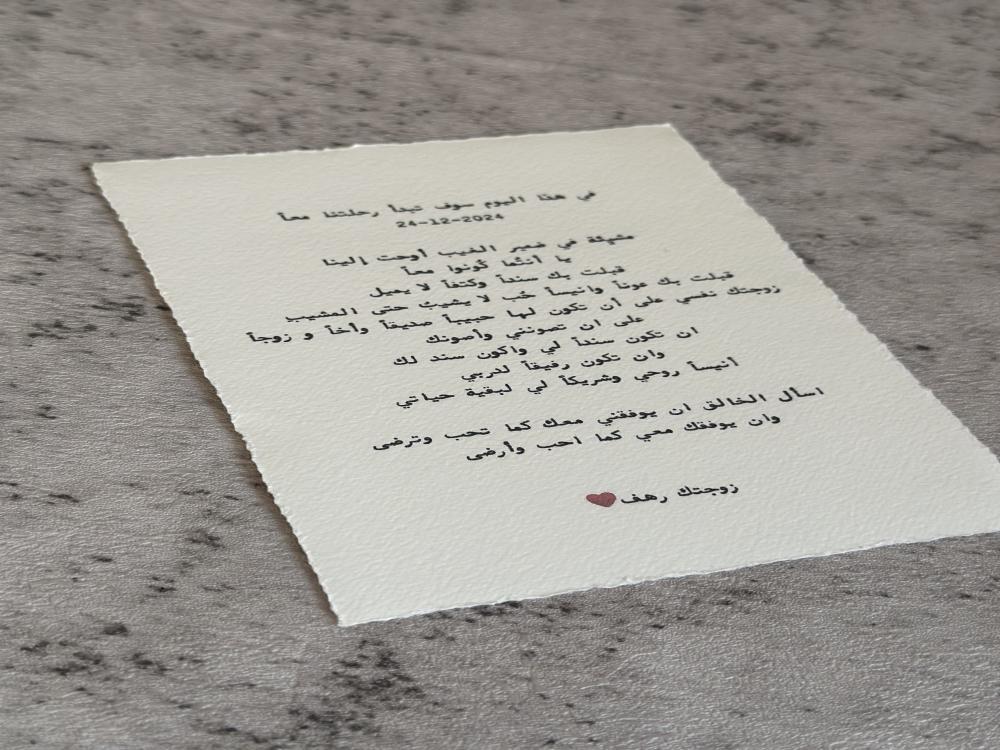 في هذا اليوم سوف تبدأ رحلتنا معاً
24-12-2024
مشيئة في ضمير الغيب أوحت إلينا
يا أنتُما كُونوا معاً
قبلت بك سنداً وكتفاً لا يميل
قبلت بك عوناً وانيساً حُب لا يشيبُ حتى المشيب
زوجتك نفسي على أن تكون لها حبيباً صديقاً وأخاً و زوجاً
على ان تصونني وأصونك
ان تكون سنداً لي واكون سند لك
وان تكون رفيقاً لدربي
أنيساً روحي وشريكاً لي لبقية حياتي
اسأل الخالق ان يوفقني معك كما تحب وترضى
وان يوفقك معي كما احب وأرضى
زوجتك رهف❤